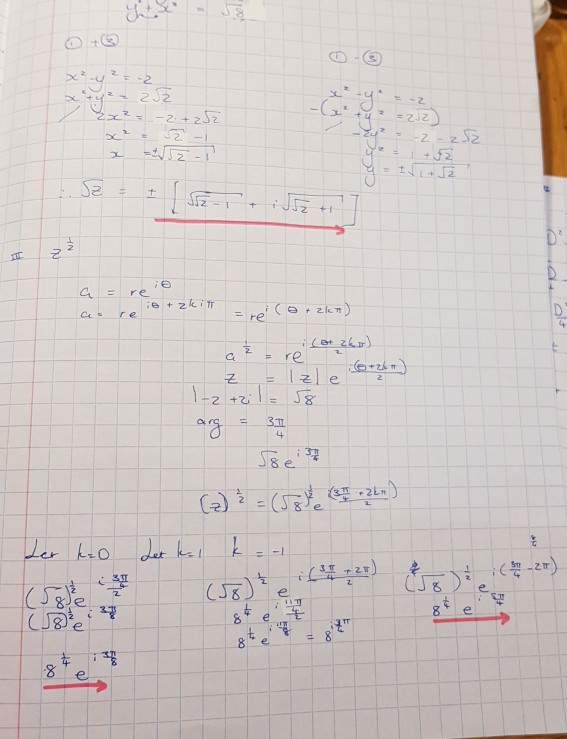 y² + x² = √8
① + ③
x² - y² = -2
x² + y² = 2√2
2x² = -2 + 2√2
x² = √2 - 1
x = ±√(√2 - 1)
① - ③
x² - y² = -2
-(x² + y² = 2√2)
-2y² = -2 - 2√2
y² = 1 + √2
y = ±√(1 + √2)
∴ √z = ± [√(√2 - 1) + i√(√2 + 1)]
III z^(1/2)
a = re^(iθ)
a = re^(iθ + 2kiπ) = re^(i(θ + 2kπ))
a^(1/2) = re^(i(θ + 2kπ)/2)
z = |z| e^(i(θ + 2kπ)/2)
|-2 + 2i| = √8
arg = 3π/4
√8 e^(i 3π/4)
(z)^(1/2) = (√8)^(1/2) e^(i(3π/4 + 2kπ)/2)
Let k=0 Let k=1 k = -1
(√8)^(1/2) e^(i (3π/4)/2)
(√8)^(1/2) e^(i 3π/8)
8^(1/4) e^(i 3π/8)
(√8)^(1/2) e^(i(3π/4 + 2π)/2)
8^(1/4) e^(i (11π/4)/2)
8^(1/4) e^(i 11π/8)
(√8)^(1/2)
8^(1/4)
D²
D
D²/4